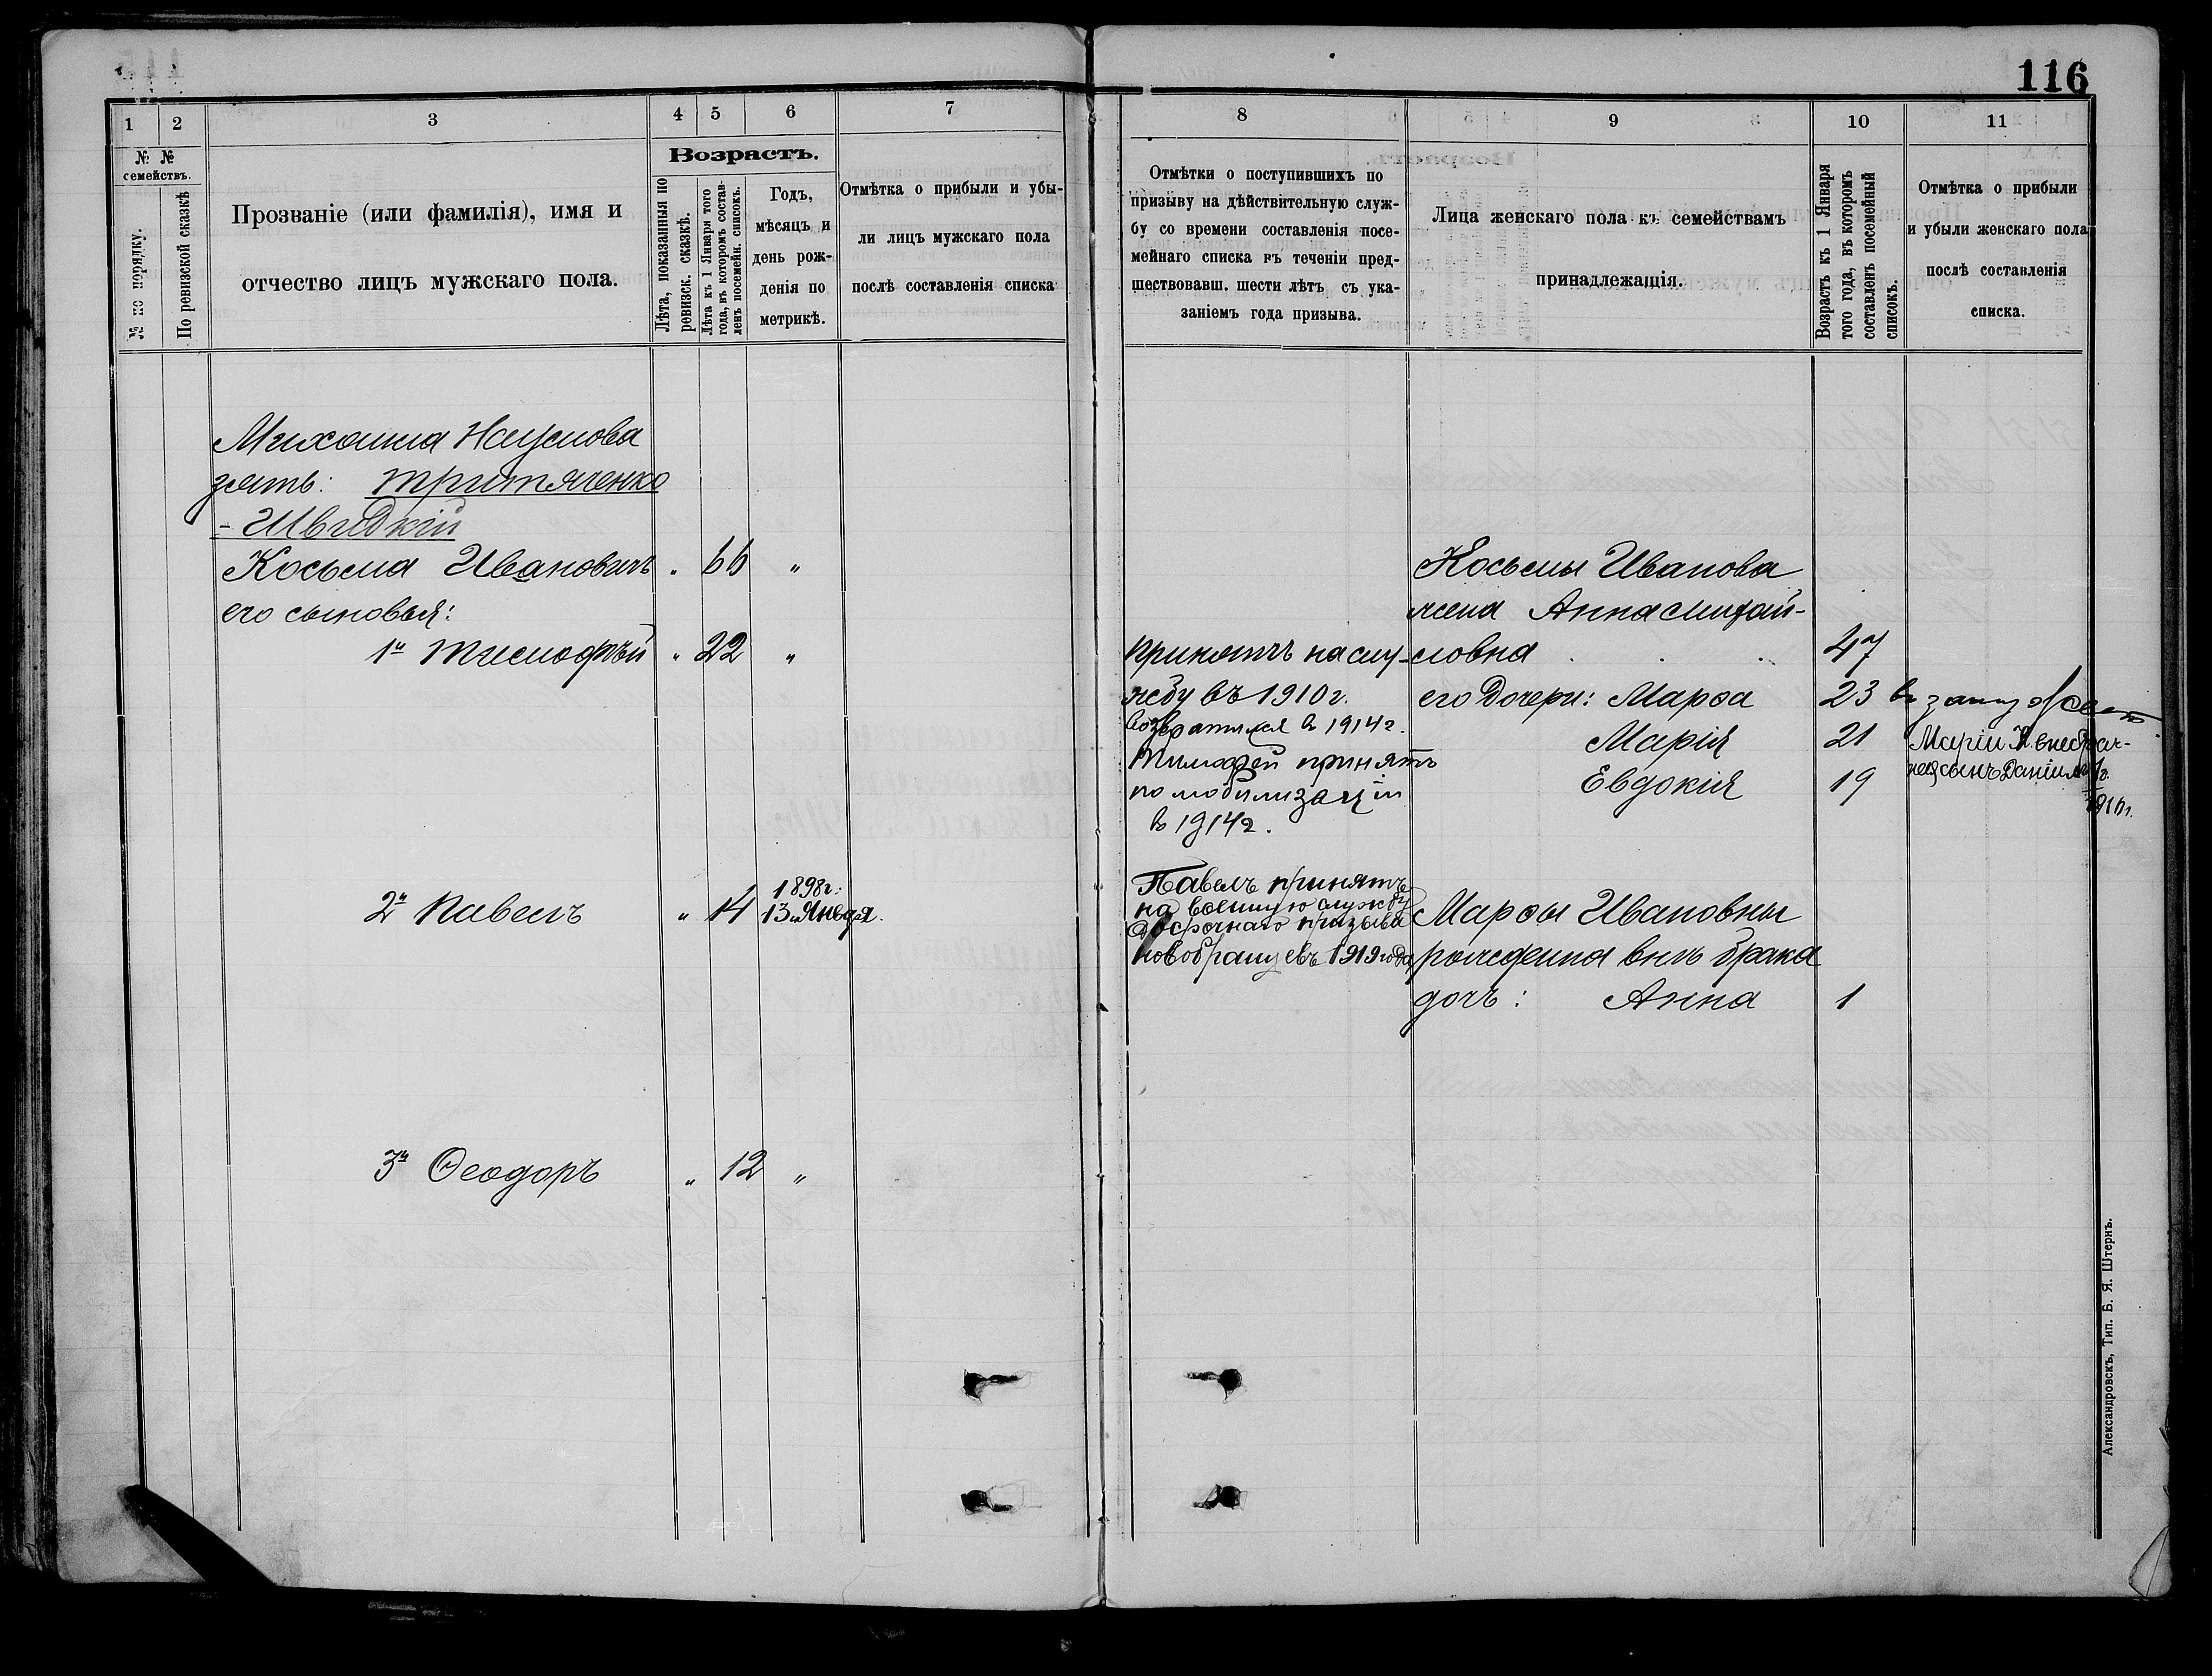 116
1
2
3
4
5
6
7
№ №
семействъ.
№ по порядку.
По ревизской сказкѣ
Прозваніе (или фамилія), имя и
отчество лицъ мужскаго пола.
Возрастъ.
Лѣта, показанныя по
ревизск. сказкѣ.
Лѣта къ 1 Января того
года, въ которомъ состав-
ленъ посемейн. списокъ.
Годъ,
мѣсяцъ и
день рож-
денія по
метрикѣ.
Отмѣтка о прибыли и убы-
ли лицъ мужскаго пола
послѣ составленія списка
Михаила Наумова
зять: Тритяченко
- Швидкій
Косьма Ивановичъ " 66 "
его сыновья:
1й Тимофѣй " 22 "
2й Павелъ " 14 1898г.
13 Января.
3й Ѳеодоръ " 12 "
8
9
10
11
Отмѣтки о поступившихъ по
призыву на дѣйствительную служ-
бу со времени составленія посе-
мейнаго списка въ теченіи пред-
шествовавш. шести лѣтъ съ ука-
заніемъ года призыва.
Лица женскаго пола къ семействамъ
принадлежащія.
Возрастъ къ 1 Января
того года, въ которомъ
составленъ посемейный
списокъ.
Отмѣтка о прибыли
и убыли женскаго пола
послѣ составленія
списка.
принятъ на слу-
жбу въ 1910 г.
возвратился в 1914 г.
Тимофей принятъ
по мобилизаціи
в 1914 г.
Павелъ принятъ
на военную службу
досрочнаго призыва
новобранцевъ 1919 года
Косьмы Иванова
жена Анна Михай-
ловна . . . 47
его дочери: Марѳа 23 в замужест
Марія 21
Евдокія 19
Маріи К. внебрач-
сынъ Даніилъ
Марѳы Ивановны
рожденна внѣ брака
дочь: Анна 1
Александровскъ, Тип. Б. Я. Штернъ.